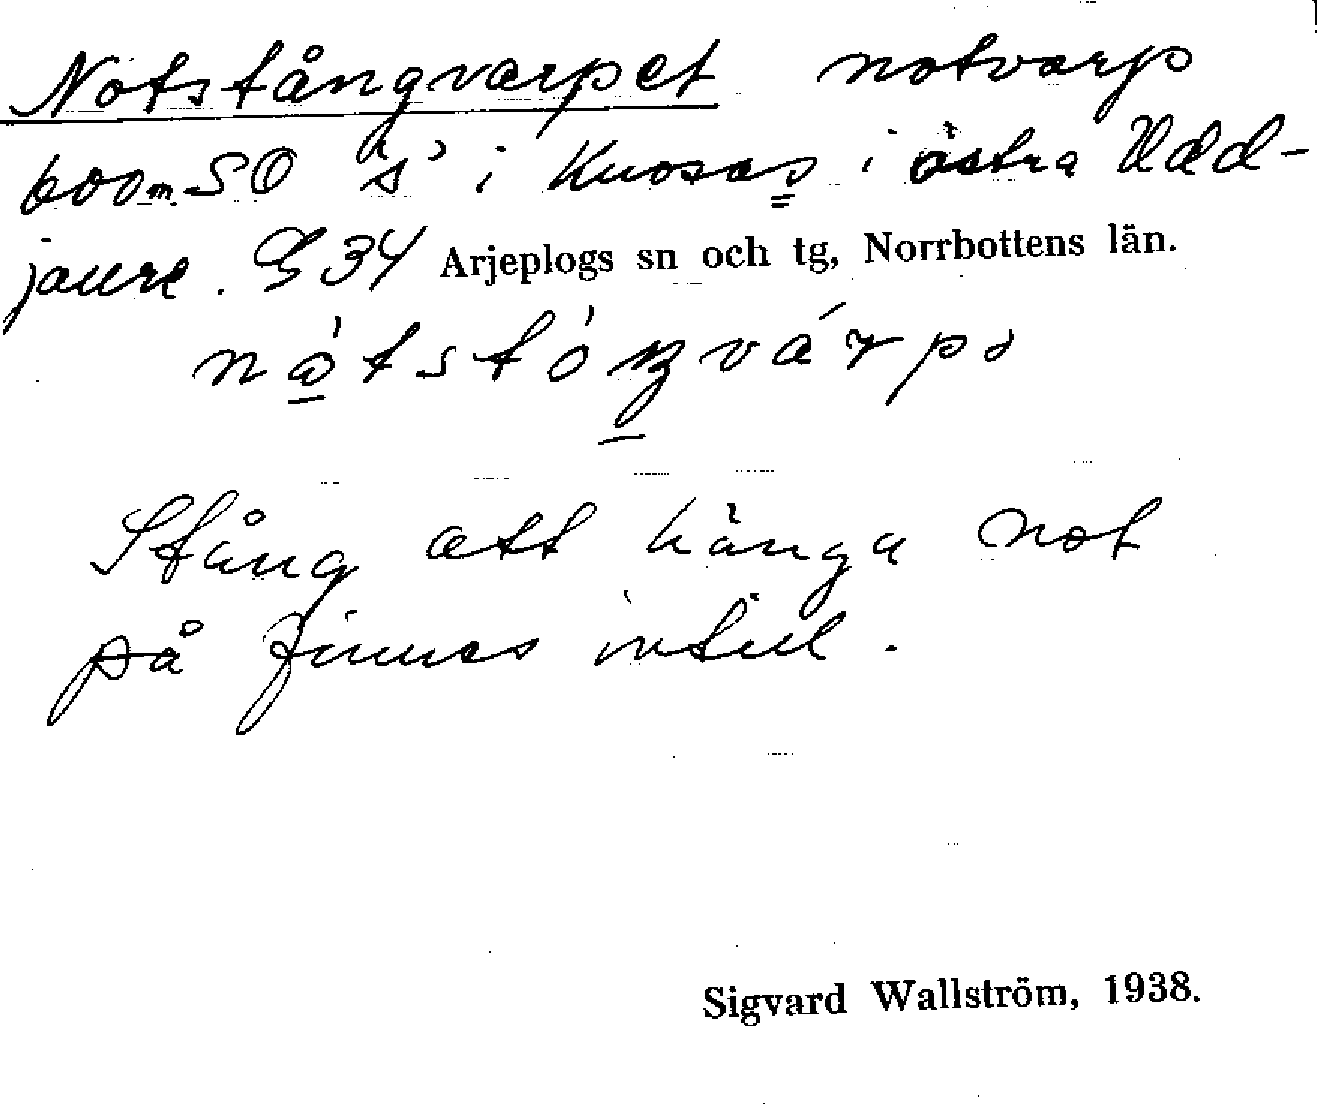 Notstångvarpet notvarp
600 m SO "s" i Kuosas i östra Udd-
jaure. G 34 Arjeplogs sn och tg, Norrbottens län.
Stång att hänga not
på finnes intill.
Sigvard Wallström, 1938.